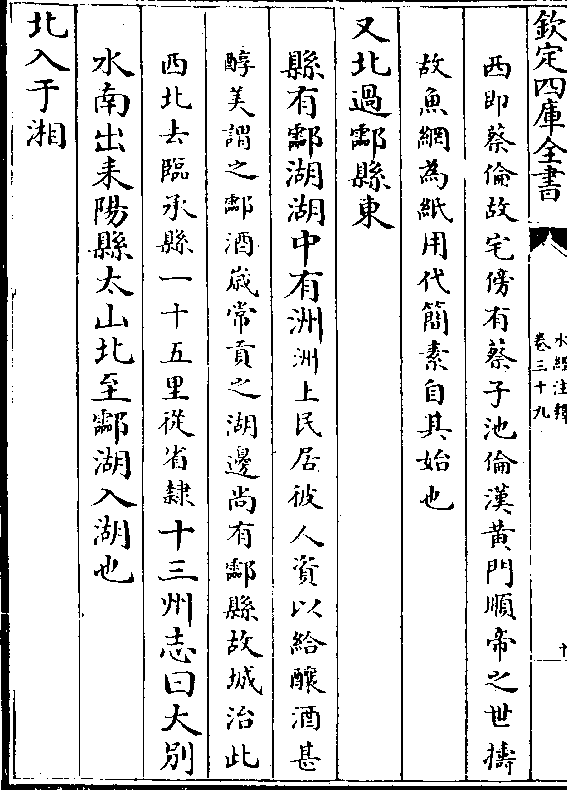 欽定四庫全書
水經注釋
卷三十九
十
西即蔡倫故宅傍有蔡子池倫漢黄門順帝之世擣
故魚網為紙用代簡素自其始也
又北過酃縣東
縣有酃湖湖中有洲洲上民居彼人資以給釀酒甚
醇美謂之酃酒歲常貢之湖邊尚有酃縣故城治此
西北去臨承縣一十五里從省隷十三州志曰大别
水南出耒陽縣太山北至酃湖入湖也
北入于湘